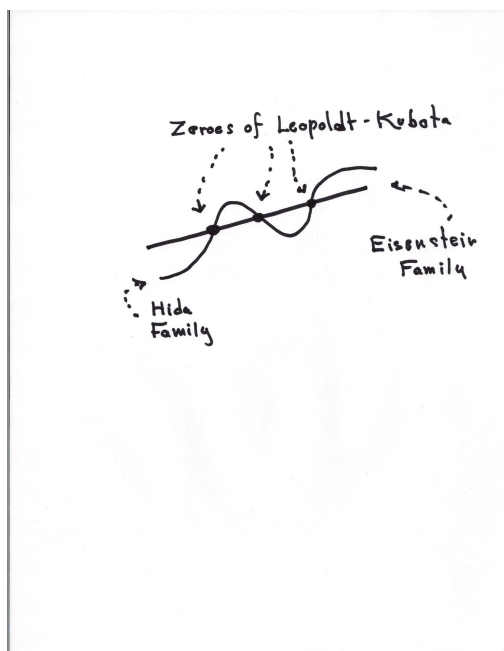 Zeroes of Leopoldt-Kubota
Eisenstein
Family
Hida
Family